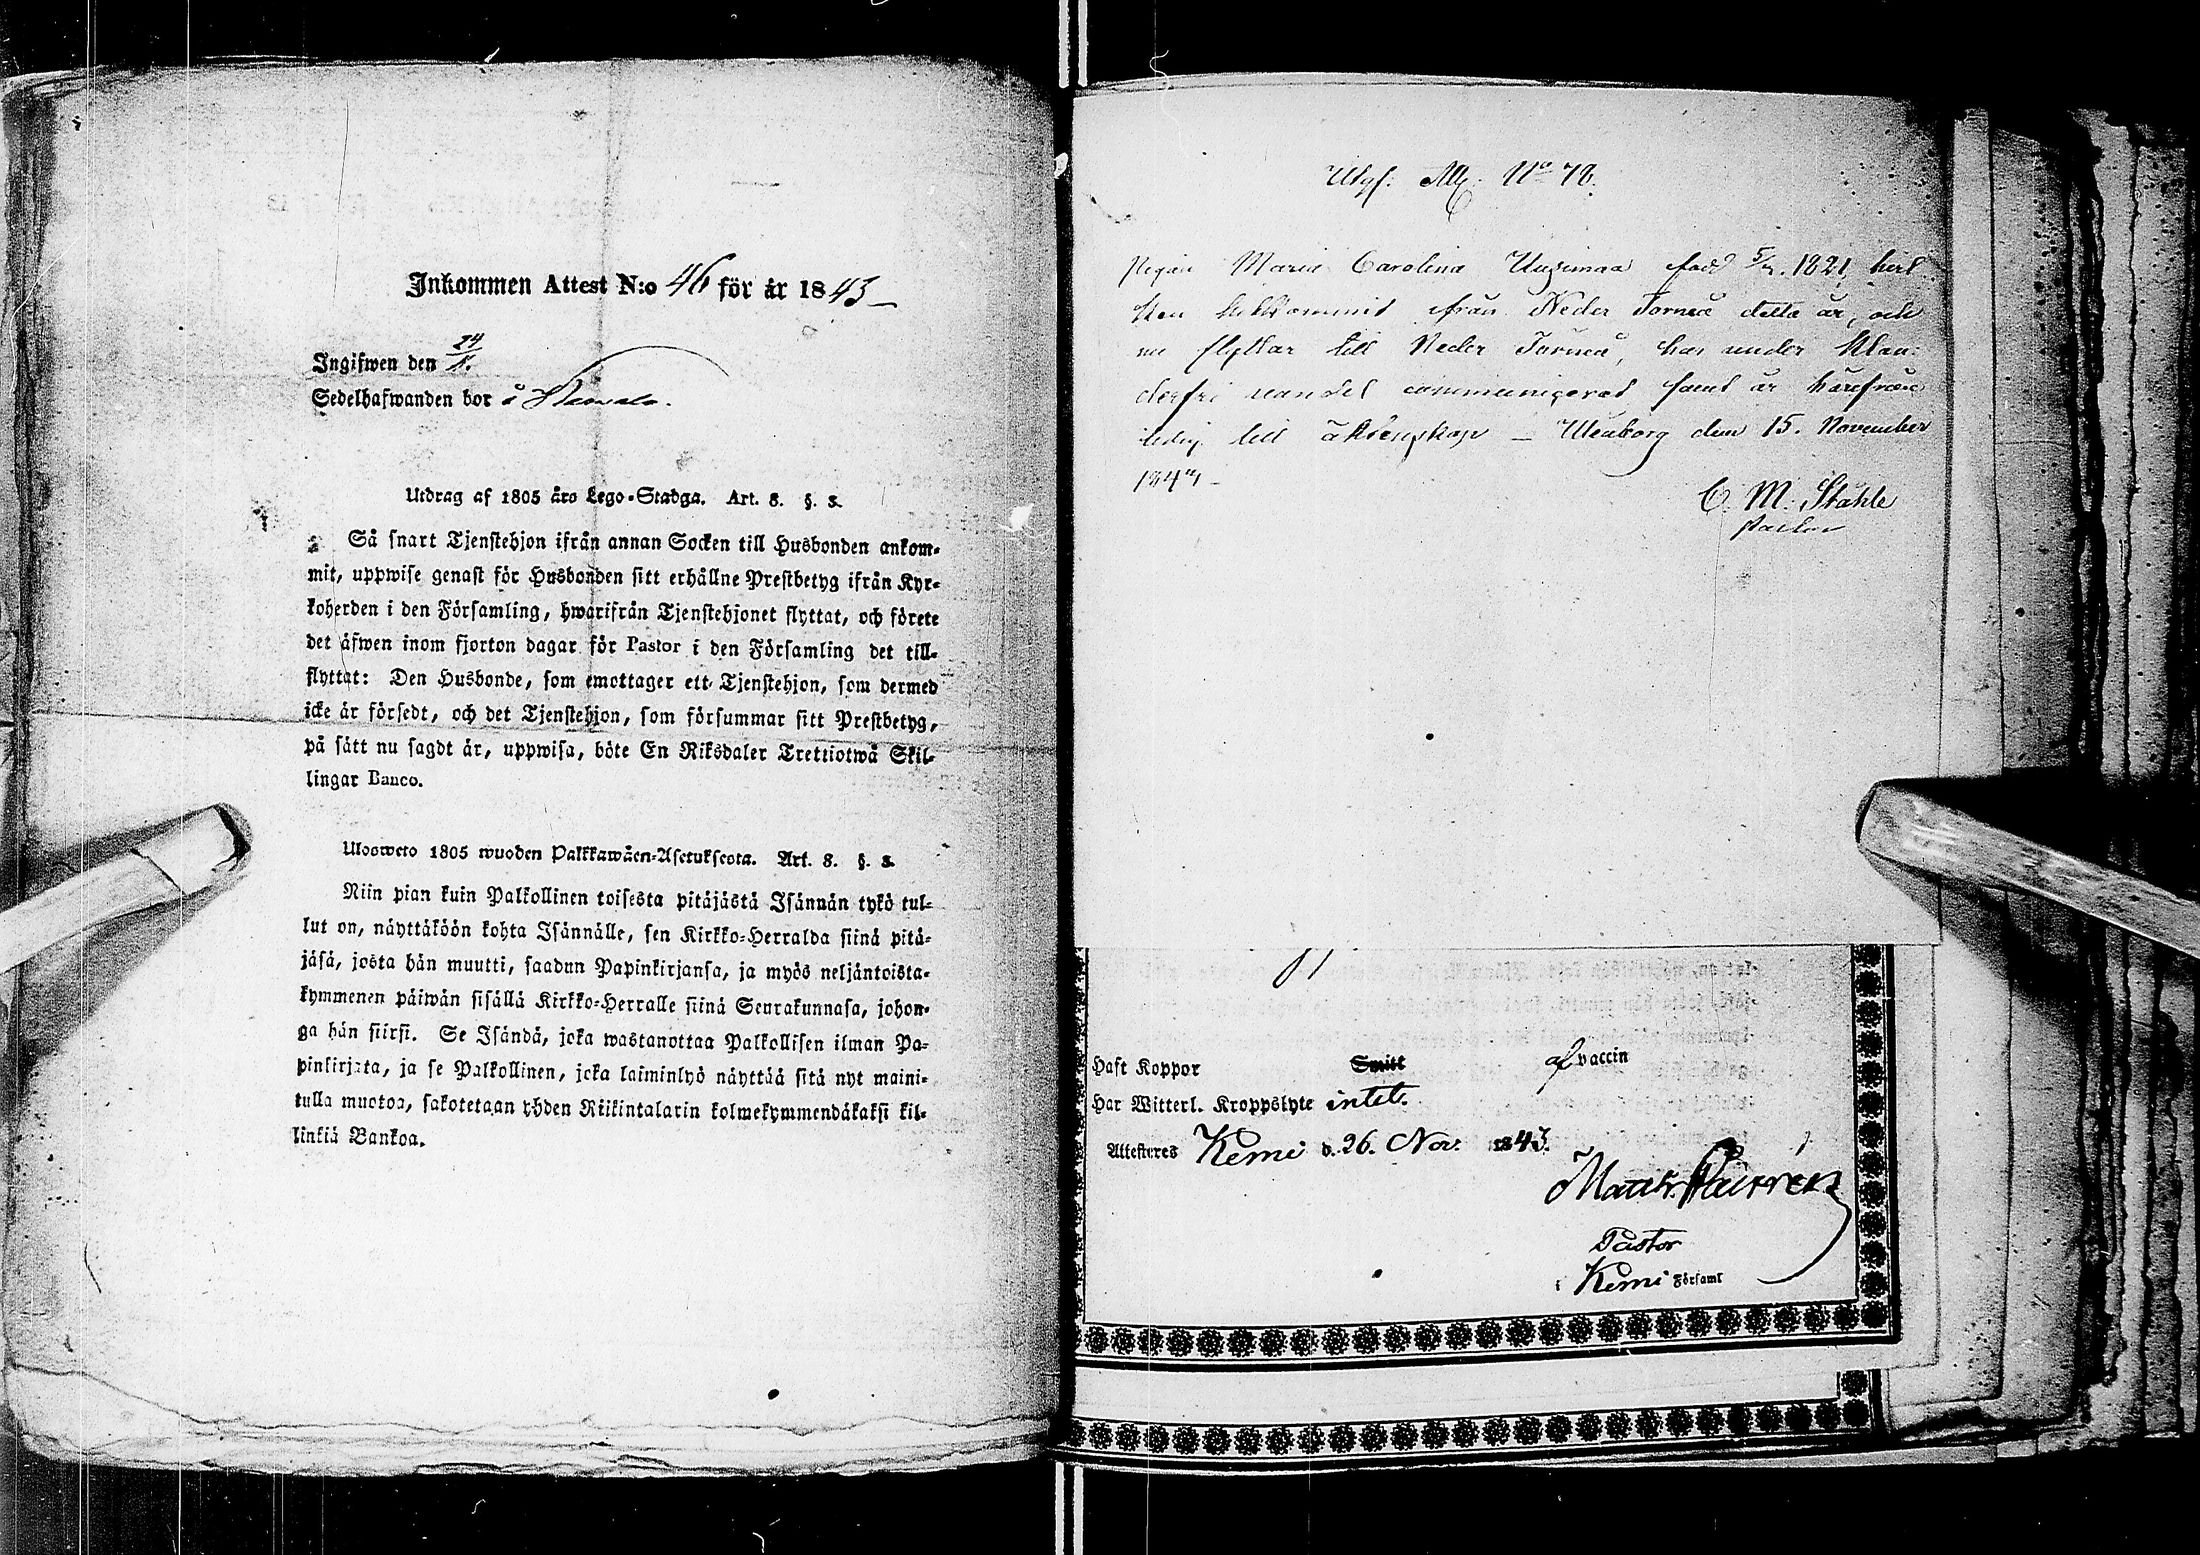 Inkommen Attest N:o 46 för år 1843
Ingifwen den 24/11.
Sedelhafwanden bor å
Utdrag af 1805 års Lego-Stadga. Art. 8. §. 3.
Så snart Tjenstehjon ifrån annan Socken till Husbonden ankom-
mit, uppwise genast för Husbonden sitt erhållne Prestbetyg ifrån Kyr-
koherden i den Församling, hwarifrån Tjenstehjonet flyttat, och förete
det äfwen inom fjorton dagar för Pastor i den Församling det till-
flyttat: Den Husbonde, som emottager ett Tjenstehjon, som dermed
icke är försedt, och det Tjenstehjon, som försummar sitt Prestbetyg,
på sätt nu sagdt är, uppwisa, böte En Riksdaler Trettiotwå Skil-
lingar Banco.
Ulosweto 1805 wuoden Palkkawäen-Asetuksesta. Art. 8. §. 3.
Niin pian kuin Palkollinen toisesta pitäjästä Isännän tykö tul-
lut on, näyttäköön kohta Isännälle, sen Kirkko-Herralda siinä pitä-
jäsä, josta hän muutti, saadun Papinkirjansa, ja myös neljäntoista-
kymmenen päiwän sisällä Kirkko-Herralle siinä Seurakunnasa, johon-
ga hän siirsi. Se Isändä, joka wastanottaa Palkollisen ilman Pa-
pinkirjata, ja se Palkollinen, joka laiminlyö näyttää sitä nyt maini-
tulla muotoa, sakotetaan yhden Riikintalarin kolmekymmendäkaksi kil-
linkiä Bankoa.
Utgf. Att. No 78.
Pigan Maria Carolina Uusimaa född 5/7. 1821, hvil
ken hitkommit från Neder Torneå detta år, och
nu flyttar till Neder Torneå, har under klan-
derfri vandel communicerat samt är härifrån
ledig till äktenskap — Uleåborg den 15. November
1843
C. M. Ståhle
Pastor
Haft Koppor Smitt af vaccin
Har Witterl. Kroppslyte intet.
Attesteres Kemi d. 26. Nov. 1843.
Matth.
Pastor
i Kemi Församl